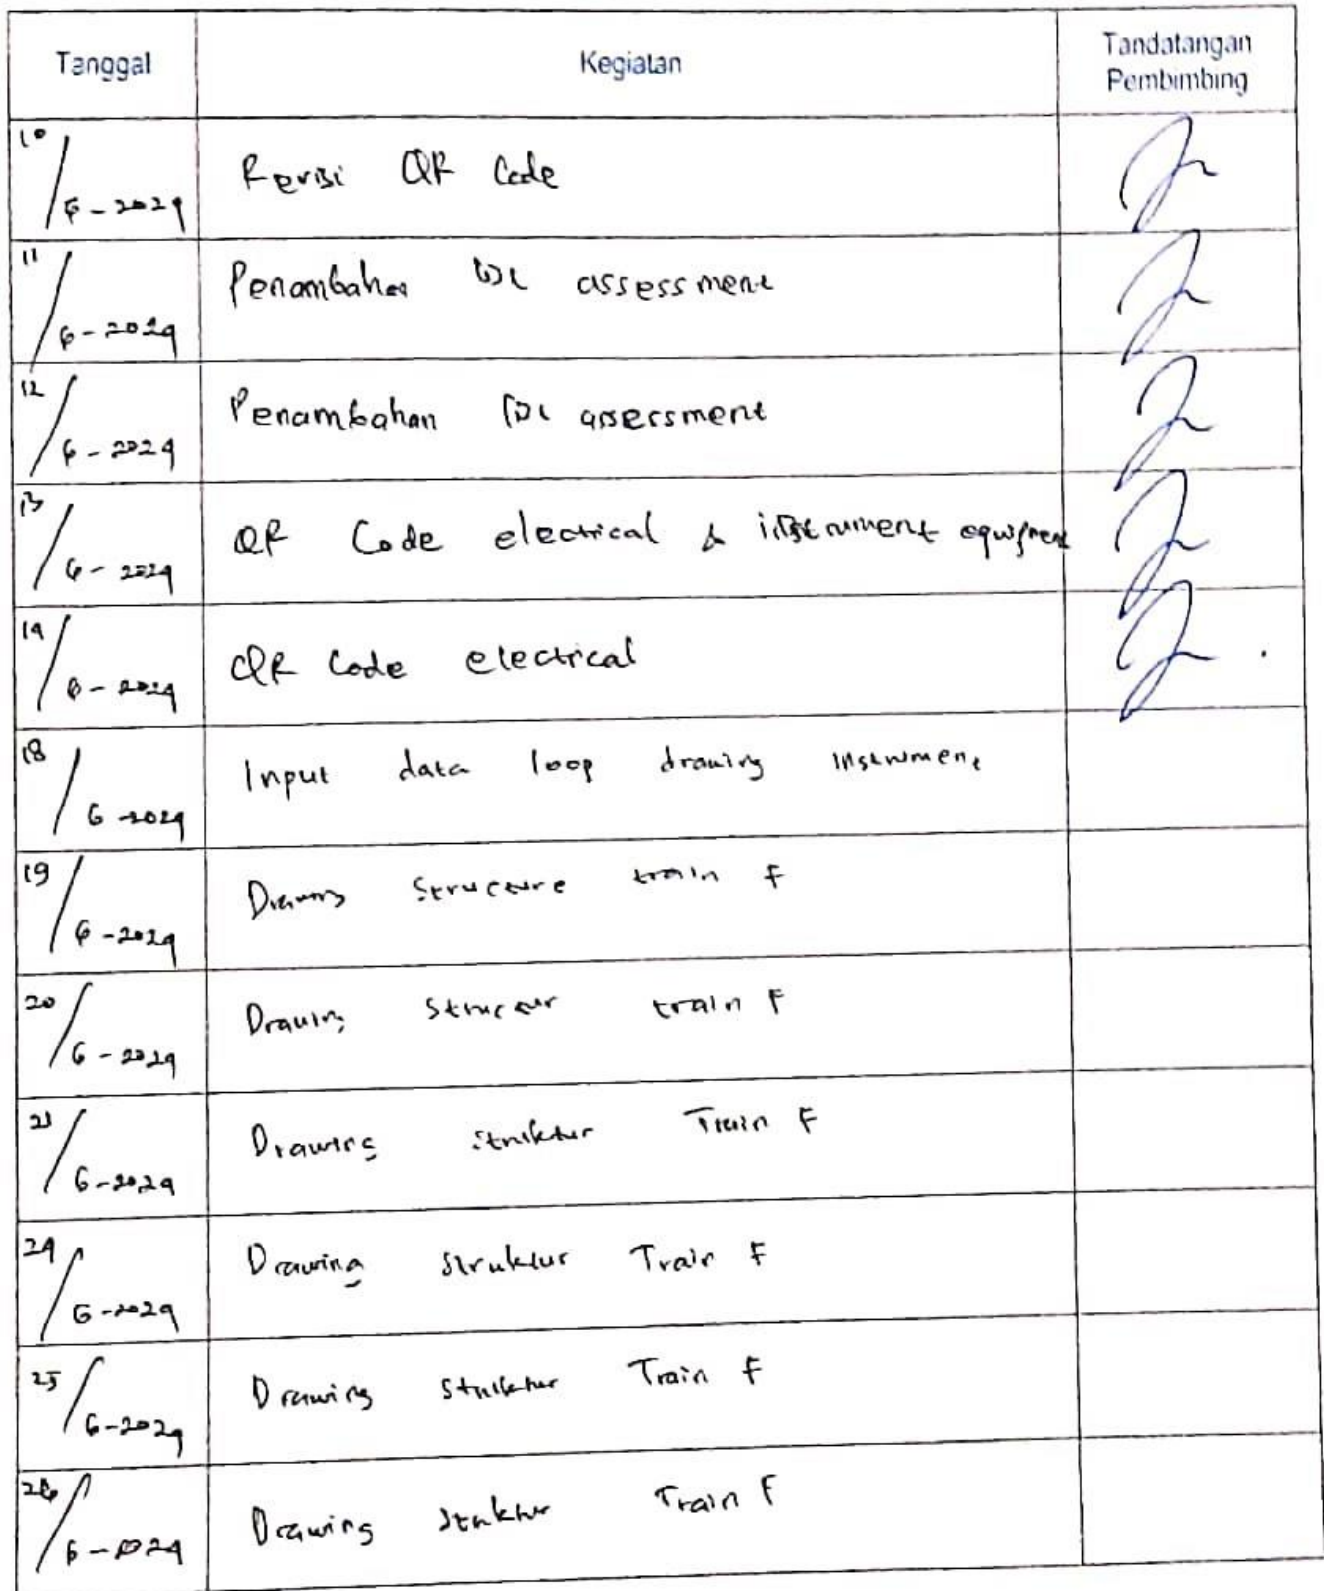 Tanggal Kegiatan Tandatangan Pembimbing
10/6-2024 Revisi QR Code
11/6-2024 Penambahan assessment
12/6-2024 Penambahan assessment
13/6-2024 QR Code electrical & instrument equipment
14/6-2024 QR Code electrical
18/6-2024 Input data loop drawing instrument
19/6-2024 Drawing Structure train F
20/6-2024 Drawing Structur train F
21/6-2024 Drawing Struktur Train F
24/6-2024 Drawing Struktur Train F
25/6-2024 Drawing Struktur Train F
26/6-2024 Drawing Struktur Train F